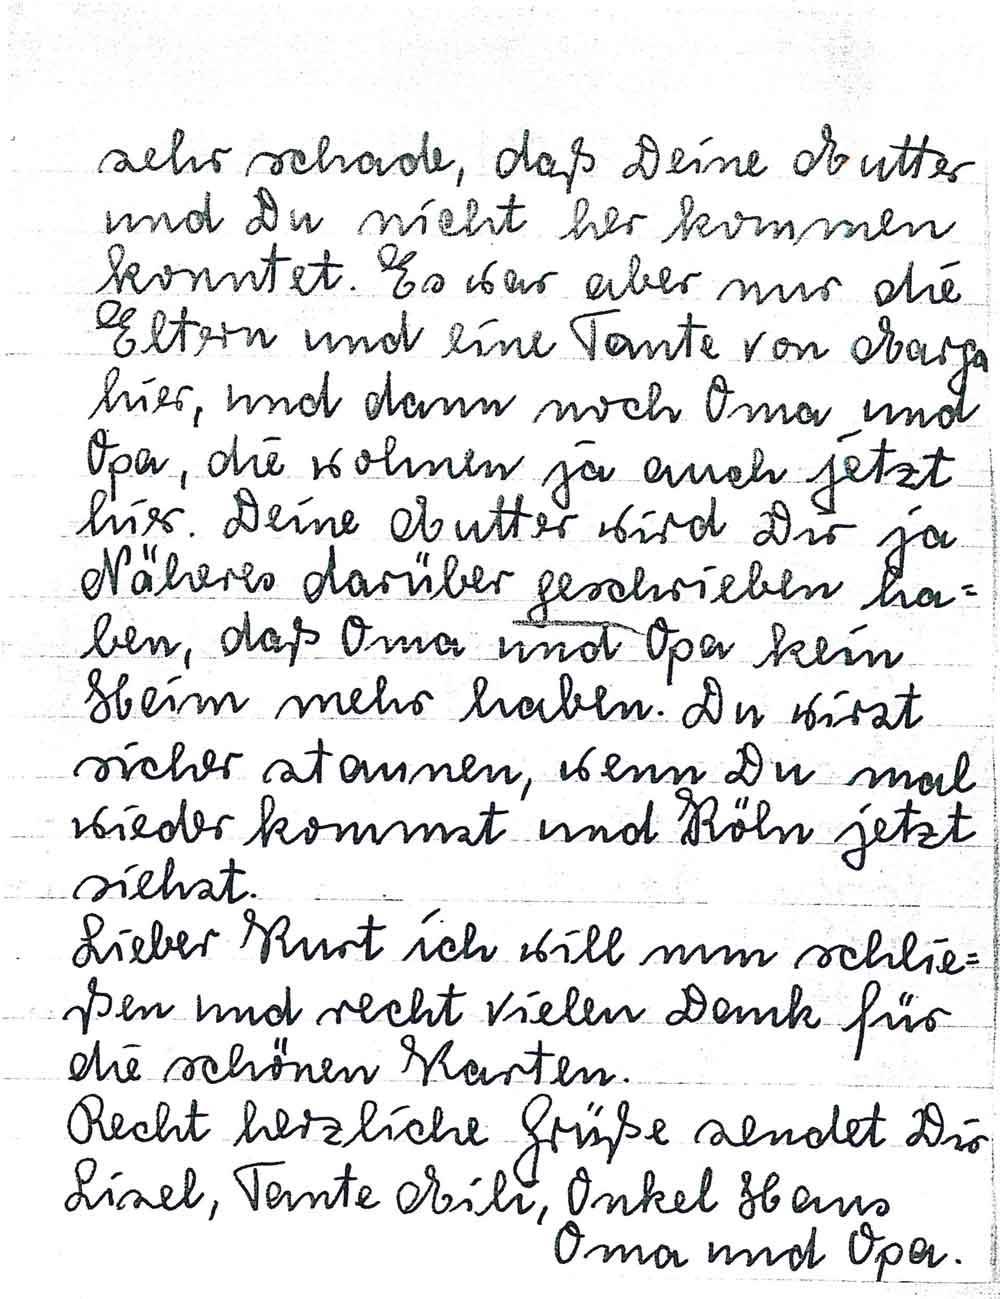 sehr schade, daß Deine Mutter
und Du nicht her kommen
konntet. Es war aber nur die
Eltern und eine Tante von Marga
hier, und dann noch Oma und
Opa, die wohnen ja auch jetzt
hier. Deine Mutter wird Dir ja
Näheres darüber geschrieben ha=
ben, daß Oma und Opa kein
Heim mehr haben. Du wirst
sicher staunen, wenn Du mal
wieder kommst und Köln jetzt
siehst.
Lieber Kurt ich will nun schlie=
ßen und recht vielen Dank für
die schönen Karten.
Recht herzliche Grüße sendet Dir
Lisel, Tante Mili, Onkel Hans
Oma und Opa.